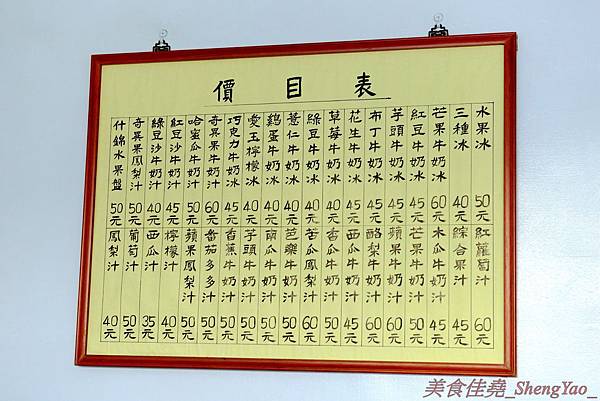 價目表
水果冰 50元
三種冰 40元
芒果牛奶冰 60元
紅豆牛奶冰 40元
芋頭牛奶冰 45元
布丁牛奶冰 40元
花生牛奶冰 45元
草莓牛奶冰 45元
綠豆牛奶冰 40元
薏仁牛奶冰 40元
鷄蛋牛奶冰 40元
愛玉檸檬冰 40元
巧克力牛奶冰 45元
奇異果牛奶汁 60元
哈蜜瓜牛奶汁 50元
紅豆沙牛奶汁 45元
綠豆沙牛奶汁 40元
奇異果鳳梨汁 50元
什錦水果盤 50元
紅蘿蔔汁 60元
綜合果汁 45元
木瓜牛奶汁 45元
芒果牛奶汁 50元
蘋果牛奶汁 60元
酪梨牛奶汁 60元
西瓜牛奶汁 45元
香瓜牛奶汁 50元
苦瓜鳳梨汁 60元
芭樂牛奶汁 50元
南瓜牛奶汁 50元
芋頭牛奶汁 50元
香蕉牛奶汁 50元
番茄多多汁 50元
蘋果鳳梨汁 50元
檸檬汁 40元
西瓜汁 35元
葡萄汁 50元
鳳梨汁 40元
美食佳堯_ShengYao_